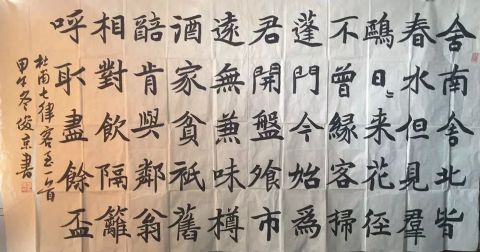 舍南舍北皆
春水但見羣
鷗日〻来花徑
不曾緣客掃
蓬門今始爲
君開盤飧市
遠無兼味樽
酒家貧祇舊
醅肯與鄰翁
相對飲隔籬
呼取盡餘盃
杜甫七律客至一首
甲午冬俊京書